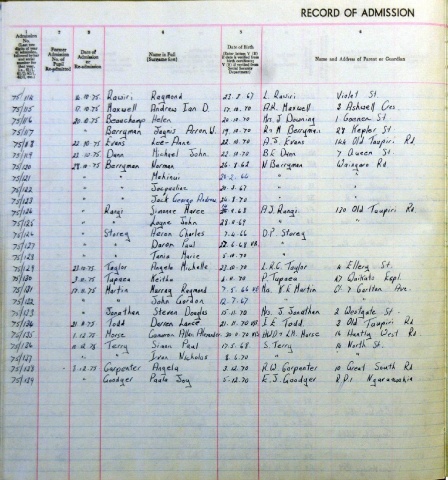 RECORD OF ADMISSION
Admission No.
Former Admission No. of Pupil Re-admitted
Date of Admission or Re-admission
Name in Full (Surname first)
Date of Birth
Name and Address of Parent or Guardian
75/114 16.10.75 Rawiri Raymond 23.2.67 L. Rawiri Violet St.
75/115 17.10.75 Maxwell Andrew Ian D. 17.10.70 A.R. Maxwell 2 Ashwell Cres.
75/116 20.10.75 Beauchamp Helen 20.10.70 Mrs J. Downing
75/117 " Berryman 19.10.70 R.n M Berryman 28 Kepler St
75/118 22.10.75 Evans Lee-Anne 22.10.70 A.J. Evans 144 Old Taupiri Rd
75/119 23.10.75 Dunn Michael John 22.10.70 B.E. Dunn 7 Queen St
75/120 28.10.75 Berryman Norman 26.8.62 N Berryman Waingaro Rd
75/121 " Mahinui
75/122 " " Jacqueline 21.3.67
75/123 " " Jack George Andrew 24.8.70
75/124 " Rangi Simonne Maree 8.68 A.J. Rangi 170 Old Taupiri Rd
75/125 " " Layne John 28.9.69
75/126 " Storey Aaron Charles 7.4.66 D.P. Storey
75/127 " " Daron Paul 27.6.68
75/128 " " Tania Marie 5.10.70
75/129 23.10.75 Taylor Angela Michelle 23.10.70 L.R.G. Taylor 4 Ellery St.
75/130 3.11.75 Tupaea Keitha 2.11.70 P. Tupaea 67 Waikato Espl.
75/131 17.11.75 Martin Murray Raymond 7.5.66 K Martin 7 Garlton Ave.
75/132 " " John Gordon 12.7.67
75/133 " Jonathan Steven Douglas 15.11.70 Mrs. J. Jonathan 2 Westgate St.
75/134 21.11.75 Todd Darren Lance 21.11.70 I.E. Todd 3 Old Taupiri Rd
75/135 1.12.75 Morse Cameron Allen Alexander 30.11.70 Morse 16 Huntly West Rd
75/136 11.12.75 Terry Simon Paul 17.5.68 S. Terry 10 North St.
75/137 " " Ivan Nicholas 8.6.70 " "
75/138 3.12.75 Carpenter Angela 3.12.70 R.W. Carpenter 10 Great South Rd
75/139 " Goodger Paula Joy 5.12.70 E.J. Goodger R.D.1 Ngaruawahia